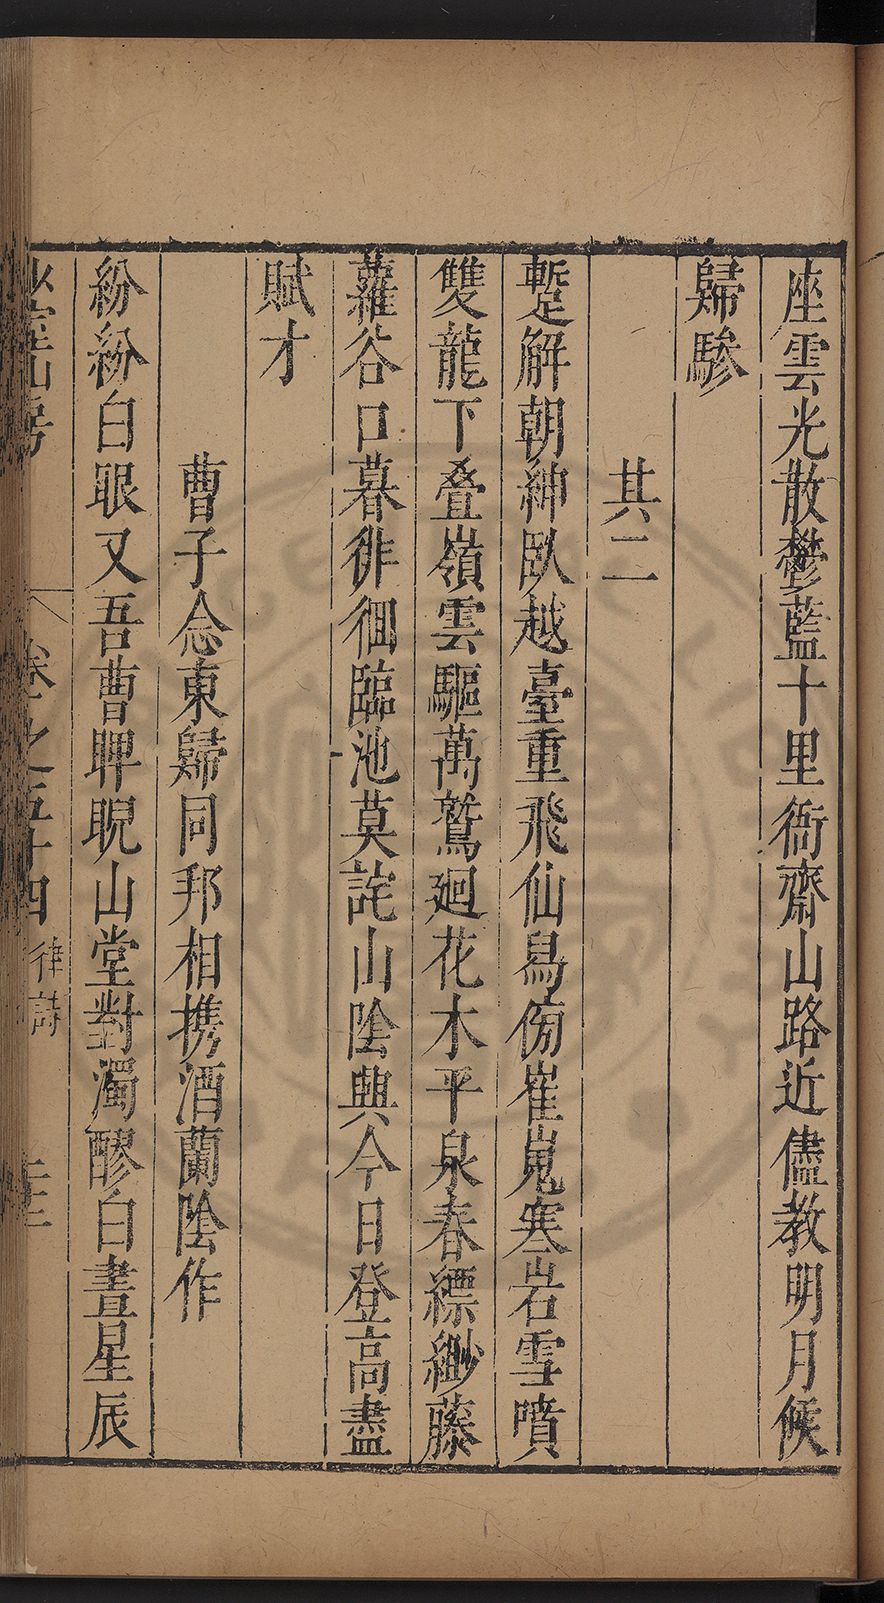 座雲光散鬱藍十里衙齋山路近儘教明月候
歸驂
其二
蹔解朝紳臥越臺重飛仙舄傍崔嵬寒岩雪噴
雙龍下叠嶺雲驅萬鷲廻花木平泉春縹緲藤
蘿谷口暮徘徊臨池莫詫山陰興今日登高盡
賦才
曹子念東歸同邦相携酒蘭陰作
紛紛白眼又吾曹睥睨山堂對濁醪白晝星辰
山房
卷之五十四 律詩